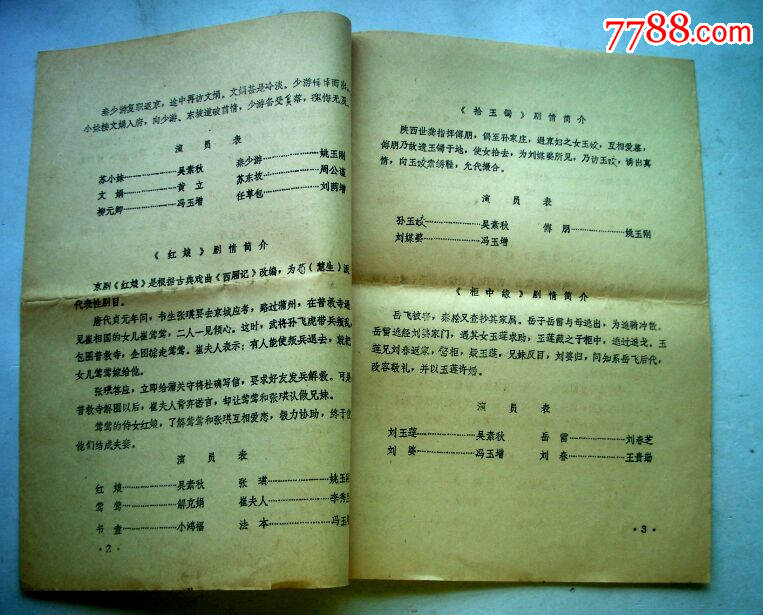 7788.com
中国收藏热线
秦少游复职返京，途中再访文娟。文娟甚是冷淡。少游
小妹接文娟入府，向少游、东坡道破前情，少游备受
演员表
苏小妹 吴素秋 秦少游 姚玉刚
文娟 黄立 苏东坡 周公谨
柳元卿 冯玉增 任草包 刘荫增
《红娘》剧情简介
京剧《红娘》是根据古典戏曲《西厢记》改编，为荀（慧生）派
代表性剧目。
唐代贞元年间，书生张珙要去京城应考，路过蒲州，在普救寺遇
见崔相国的女儿崔莺莺，二人一见倾心。这时，武将孙飞虎带兵叛乱，
包围普救寺，企图掳走莺莺。崔夫人表示：有人能使叛兵退去，就把
女儿莺莺嫁给他。
张珙答应，立即给蒲关守将杜确写信，要求好友发兵解救。可是
普救寺解围以后，崔夫人背弃诺言，却让莺莺和张珙认做兄妹。
莺莺的侍女红娘，了解莺莺和张珙互相爱恋，极力协助，终于使
他们结成夫妻。
演员表
红娘 吴素秋 张珙 姚玉刚
莺莺 解克娟 崔夫人 李秀
书童 小鸿福 法本 冯玉增
·2·
《拾玉镯》剧情简介
陕西世袭指挥傅朋，偶至孙家庄，遇
之女玉姣，互相爱慕，
傅朋乃故遗玉镯于地，使女拾去，为刘媒婆所见，乃访玉姣，诱出真
情，向玉姣索绣鞋，允代撮合。
演员表
孙玉姣 吴素秋 傅朋 姚玉刚
刘媒婆 冯玉增
《柜中缘》剧情简介
岳飞被害，秦桧又查抄其家属。岳子岳雷与母逃出，为追骑冲散。
岳雷逃经刘婆家门，遇其女玉莲求助，玉莲藏之于柜中，逃过追戈。玉
莲兄刘春返家，
柜，疑玉莲，兄妹反目，刘婆归，问知系岳飞后代，
改容敬礼，并以玉莲许婚。
演员表
刘玉莲 吴素秋 岳雷 刘春芝
刘婆 冯玉增 刘春 王贵勋
·3·